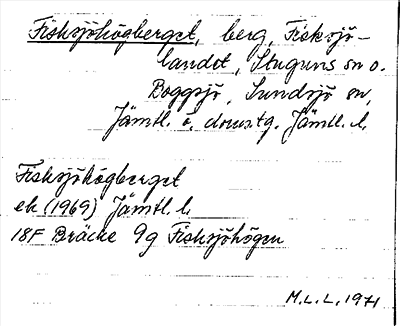 Fisksjöhögberget, berg, Fisksjö-
landet, Stuguns sn o.
Boggsjö, Sundsjö sn,
Jämtl. ö. domstg. Jämtl. l.
Fisksjöhögberget
ek (1969) Jämtl. l.
18F Bräcke 9g Fisksjöhögen
M.L.L. 1971